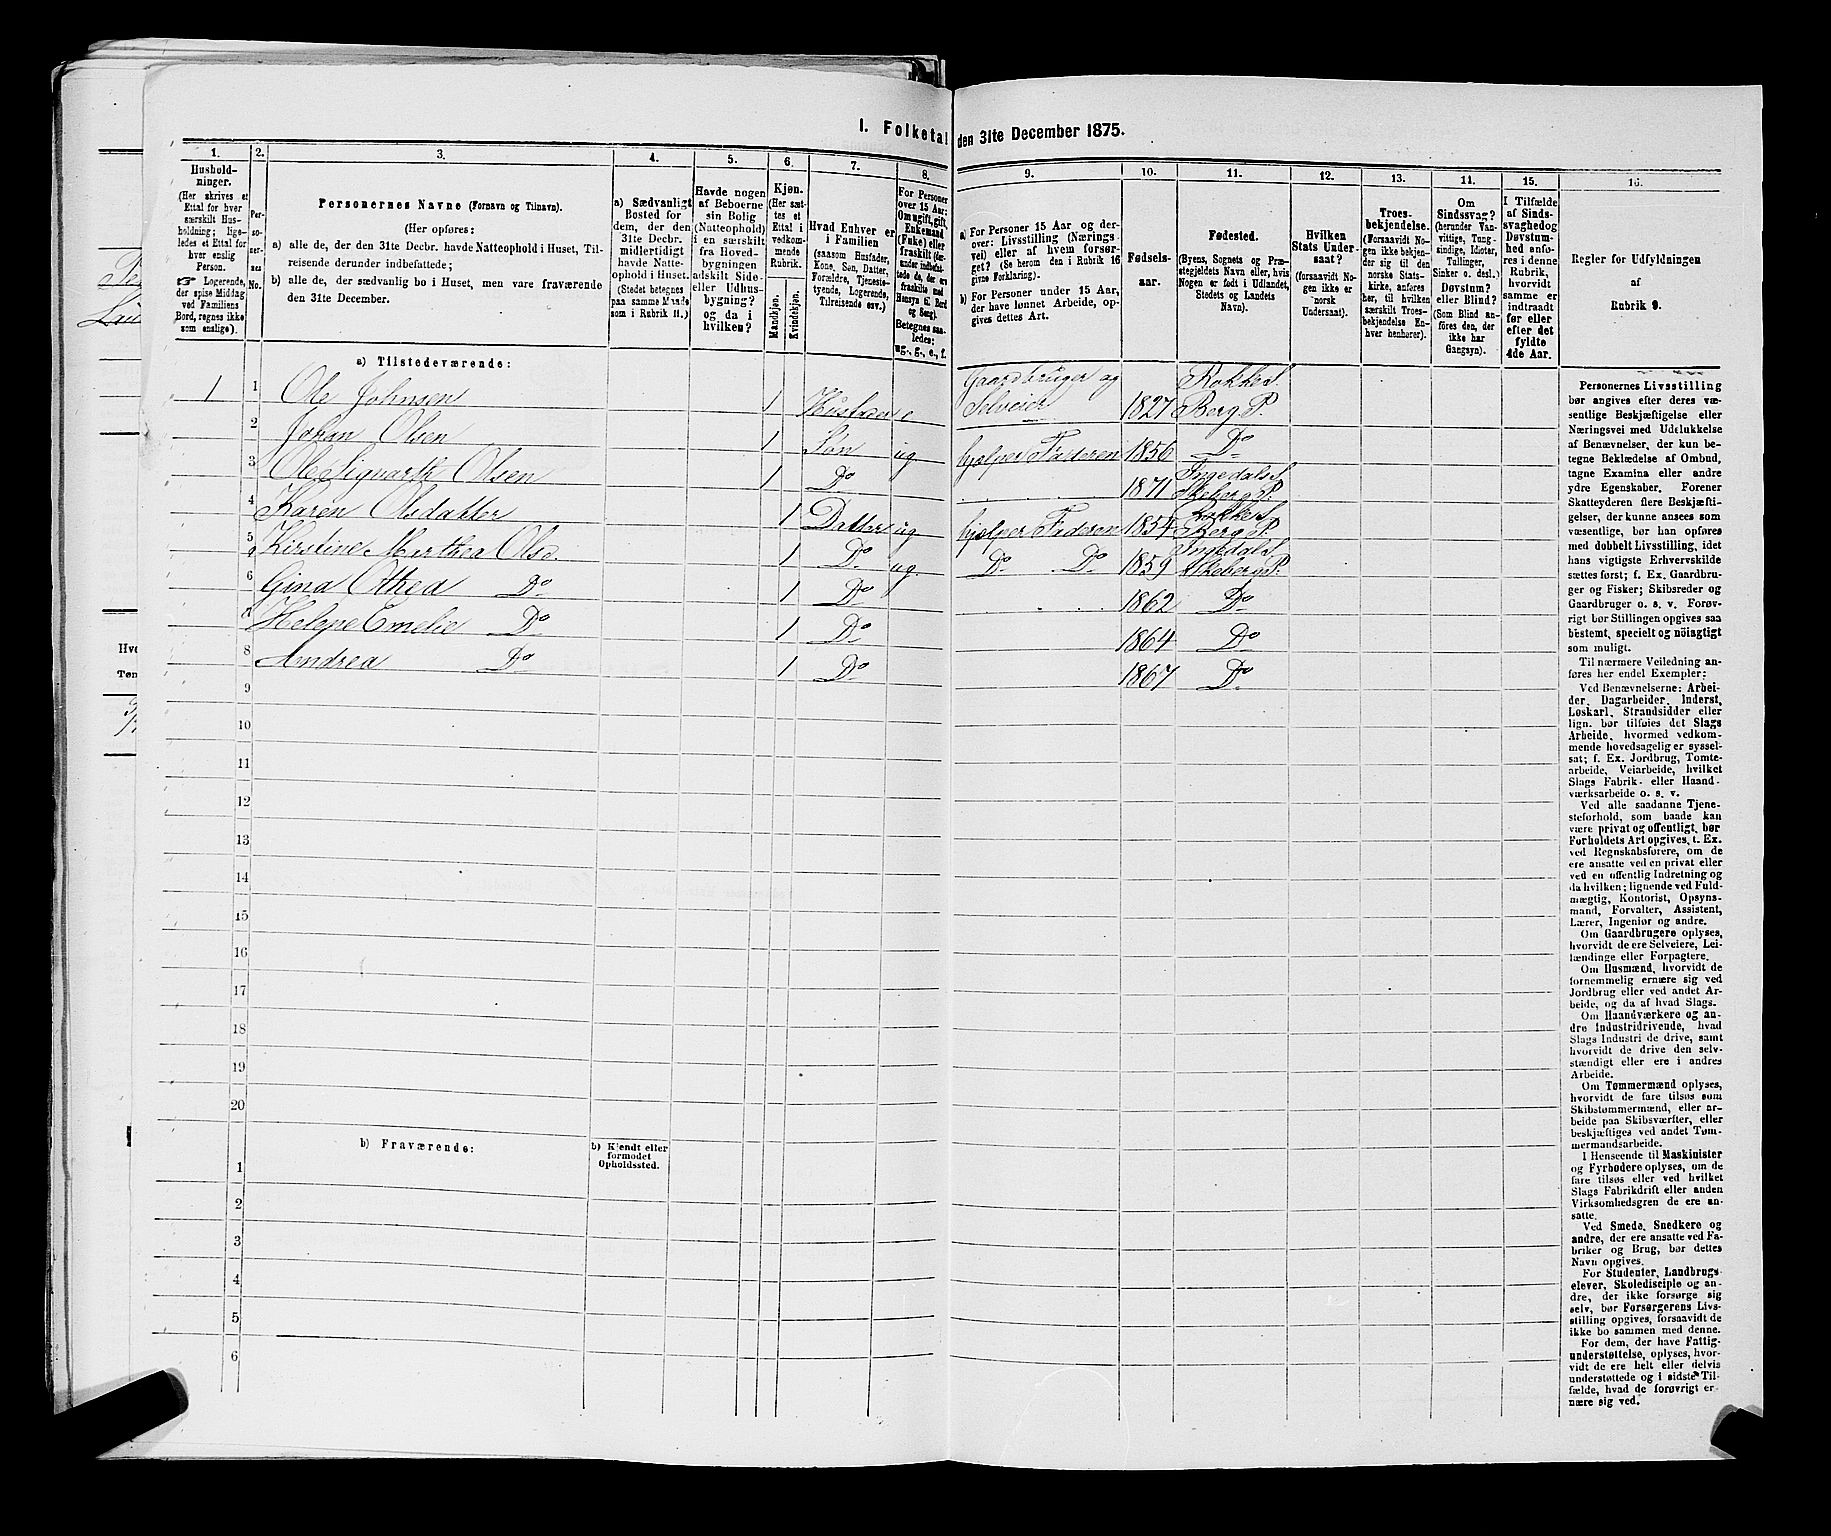 I. Folketal den 31te December 1875.
1.
Hushold-
ninger.
(Her skrives et
Ettal for hver
særskilt Hus-
holdning; lige-
ledes et Ettal for
hver enslig
Person.
☛ Logerende,
der spise Middag
ved Familiens
Bord, regnes ikke
som enslige).
2.
Per-
so-
ner-
nes
No.
3.
Personernes Navne (Fornavn og Tilnavn).
(Her opføres:
a) alle de, der den 31te Decbr. havde Natteophold i Huset, Til-
reisende derunder indbefattede;
b) alle de, der sædvanlig bo i Huset, men vare fraværende
den 31te December.
4.
a) Sædvanligt
Bosted for
dem, der den
31te Decbr.
midlertidigt
havde Natte-
ophold i Huset.
(Stedet betegnes
paa samme Maade
som i Rubrik 11.)
5.
Havde nogen
af Beboerne
sin Bolig
(Natteophold)
i en særskilt
fra Hoved-
bygningen
adskilt Side-
eller Udhus-
bygning?
og da i
hvilken?
6.
Kjøn.
(Her sæt-
tes et
Ettal i
vedkom-
mende
Rubrik.
Mandkjøn.
Kvindekjøn.
7.
Hvad Enhver er
i Familien
(saasom Husfader,
Kone, Søn, Datter,
Forældre, Tjeneste-
tyende, Logerende,
Tilreisende osv.)
8.
For Personer
over 15 Aar:
Om ugift, gift,
Enkemand
(Enke) eller
fraskilt (der-
under indbefat-
tede de, der ere
fraskilte med
Hensyn til Bord
og Seng).
Betegnes saa-
ledes:
ug., g., e., f.
9.
a) For Personer 15 Aar og der-
over: Livsstilling (Nærings-
vei) eller af hvem forsør-
get? (Se herom den i Rubrik 16
givne Forklaring).
b) For Personer under 15 Aar,
der have lønnet Arbeide, op-
gives dettes Art.
10.
Fødsels-
aar.
11.
Fødested.
(Byens, Sognets og Præ-
stegjeldets Navn eller, hvis
Nogen er født i Udlandet,
Stedets og Landets
Navn).
12.
Hvilken
Stats Under-
saat?
(forsaavidt No-
gen ikke er
norsk
Undersaat).
13.
Troes-
bekjendelse.
(Forsaavidt No-
gen ikke bekjen-
der sig til den
norske Stats-
kirke, anføres
her, til hvilken
særskilt Troes-
bekjendelse En-
hver henhører).
11.
Om
Sindssvag?
(herunder Van-
vittige, Tung-
sindige, Idioter,
Tullinger,
Sinker o. desl.)
Døvstum?
eller Blind?
(Som Blind an-
føres den, der
ikke har
Gangsyn).
15.
I Tilfælde
af Sinds-
svaghed og
Døvstum-
hed anfø-
res i denne
Rubrik,
hvorvidt
samme er
indtraadt
før eller
efter det
fyldte
4de Aar.
16.
Regler for Udfyldningen
af
Rubrik 9.
a) Tilstedeværende:
1 1 Ole Johnsen 1 Husfader e Gaardbruger og Selveier 1827 Rokke S. Berg P.
2 Johan Olsen 1 Søn ug hjælper Faderen 1856 Do
3 Ole Sigvarth Olsen 1 Do 1871 Ingedal S. Skeberg P.
4 Karen Olsdatter 1 Datter ug hjælper Faderen 1854 Rokke S. Berg P.
5 Kirstine Marthea Olsd. 1 Do ug. Do Do 1859 Ingedal S. Skeberg P.
6 Gina Othea Do 1 Do 1862 Do
7 Helene Emelie Do 1 Do 1864 Do
8 Andrea Do 1 Do 1867 Do
9
10
11
12
13
14
15
16
17
18
19
20
b) Fraværende:
b) Kjendt eller
formodet
Opholdssted.
1
2
3
4
5
6
Personernes Livsstilling
bør angives efter deres væ-
sentlige Beskjæftigelse eller
Næringsvei med Udelukkelse
af Benævnelser, der kun be-
tegne Beklædelse af Ombud,
tagne Examina eller andre
ydre Egenskaber. Forener
Skatteyderen flere Beskjæfti-
gelser, der kunne ansees som
væsentlige, bør han opføres
med dobbelt Livsstilling, idet
hans vigtigste Erhvervskilde
sættes først; f. Ex. Gaardbru-
ger og Fisker; Skibsreder og
Gaardbruger o. s. v. Forøv-
rigt bør Stillingen opgives saa
bestemt, specielt og nöiagtigt
som muligt.
Til nærmere Veiledning an-
føres her endel Exempler:
Ved Benævnelserne: Arbei-
der, Dagarbeider, Inderst,
Løskarl, Strandsidder eller
lign. bør tilføies det Slags
Arbeide, hvormed vedkom-
mende hovedsagelig er syssel-
sat; f. Ex. Jordbrug, Tomte-
arbeide, Veiarbeide, hvilket
Slags Fabrik- eller Haand-
værksarbeide o. s. v.
Ved alle saadanne Tjene-
steforhold, som baade kan
være privat og offentligt, bør
Forholdets Art opgives, t. Ex.
ved Regnskabsførere, om de
ere ansatte ved en privat eller
ved en offentlig Indretning og
da hvilken; lignende ved Fuld-
mægtig, Kontorist, Opsyns-
mand, Forvalter, Assistent,
Lærer, Ingeniør og andre.
Om Gaardbrugere oplyses,
hvorvidt de ere Selveiere, Lei-
lændinge eller Forpagtere.
Om Husmænd, hvorvidt de
fornemmelig ernære sig ved
Jordbrug eller ved andet Ar-
beide, og da af hvad Slags.
Om Haandværkere og an-
dre Industridrivende, hvad
Slags Industri de drive, samt
hvorvidt de drive den selv-
stændigt eller ere i andres
Arbeide.
Om Tømmermænd oplyses,
hvorvidt de fare tilsøs som
Skibstømmermænd, eller ar-
beide paa Skibsværfter, eller
beskjæftiges ved andet Tøm-
mermandsarbeide.
I Henseende til Maskinister
og Fyrbødere oplyses, om de
fare tilsøs eller ved hvilket
Slags Fabrikdrift eller anden
Virksomhedsgren de ere an-
satte.
Ved Smede, Snedkere og
andre, der ere ansatte ved Fa-
briker og Brug, bør dettes
Navn opgives.
For Studenter, Landbrugs-
elever, Skoledisciple og an-
dre, der ikke forsørge sig
selv, bør Forsørgerens Livs-
stilling opgives, forsaavidt de
ikke bo sammen med denne.
For dem, der have Fattig-
understøttelse, oplyses, hvor-
vidt de ere helt eller delvis
understøttede og i sidste Til-
fælde, hvad de forøvrigt er-
nære sig ved.